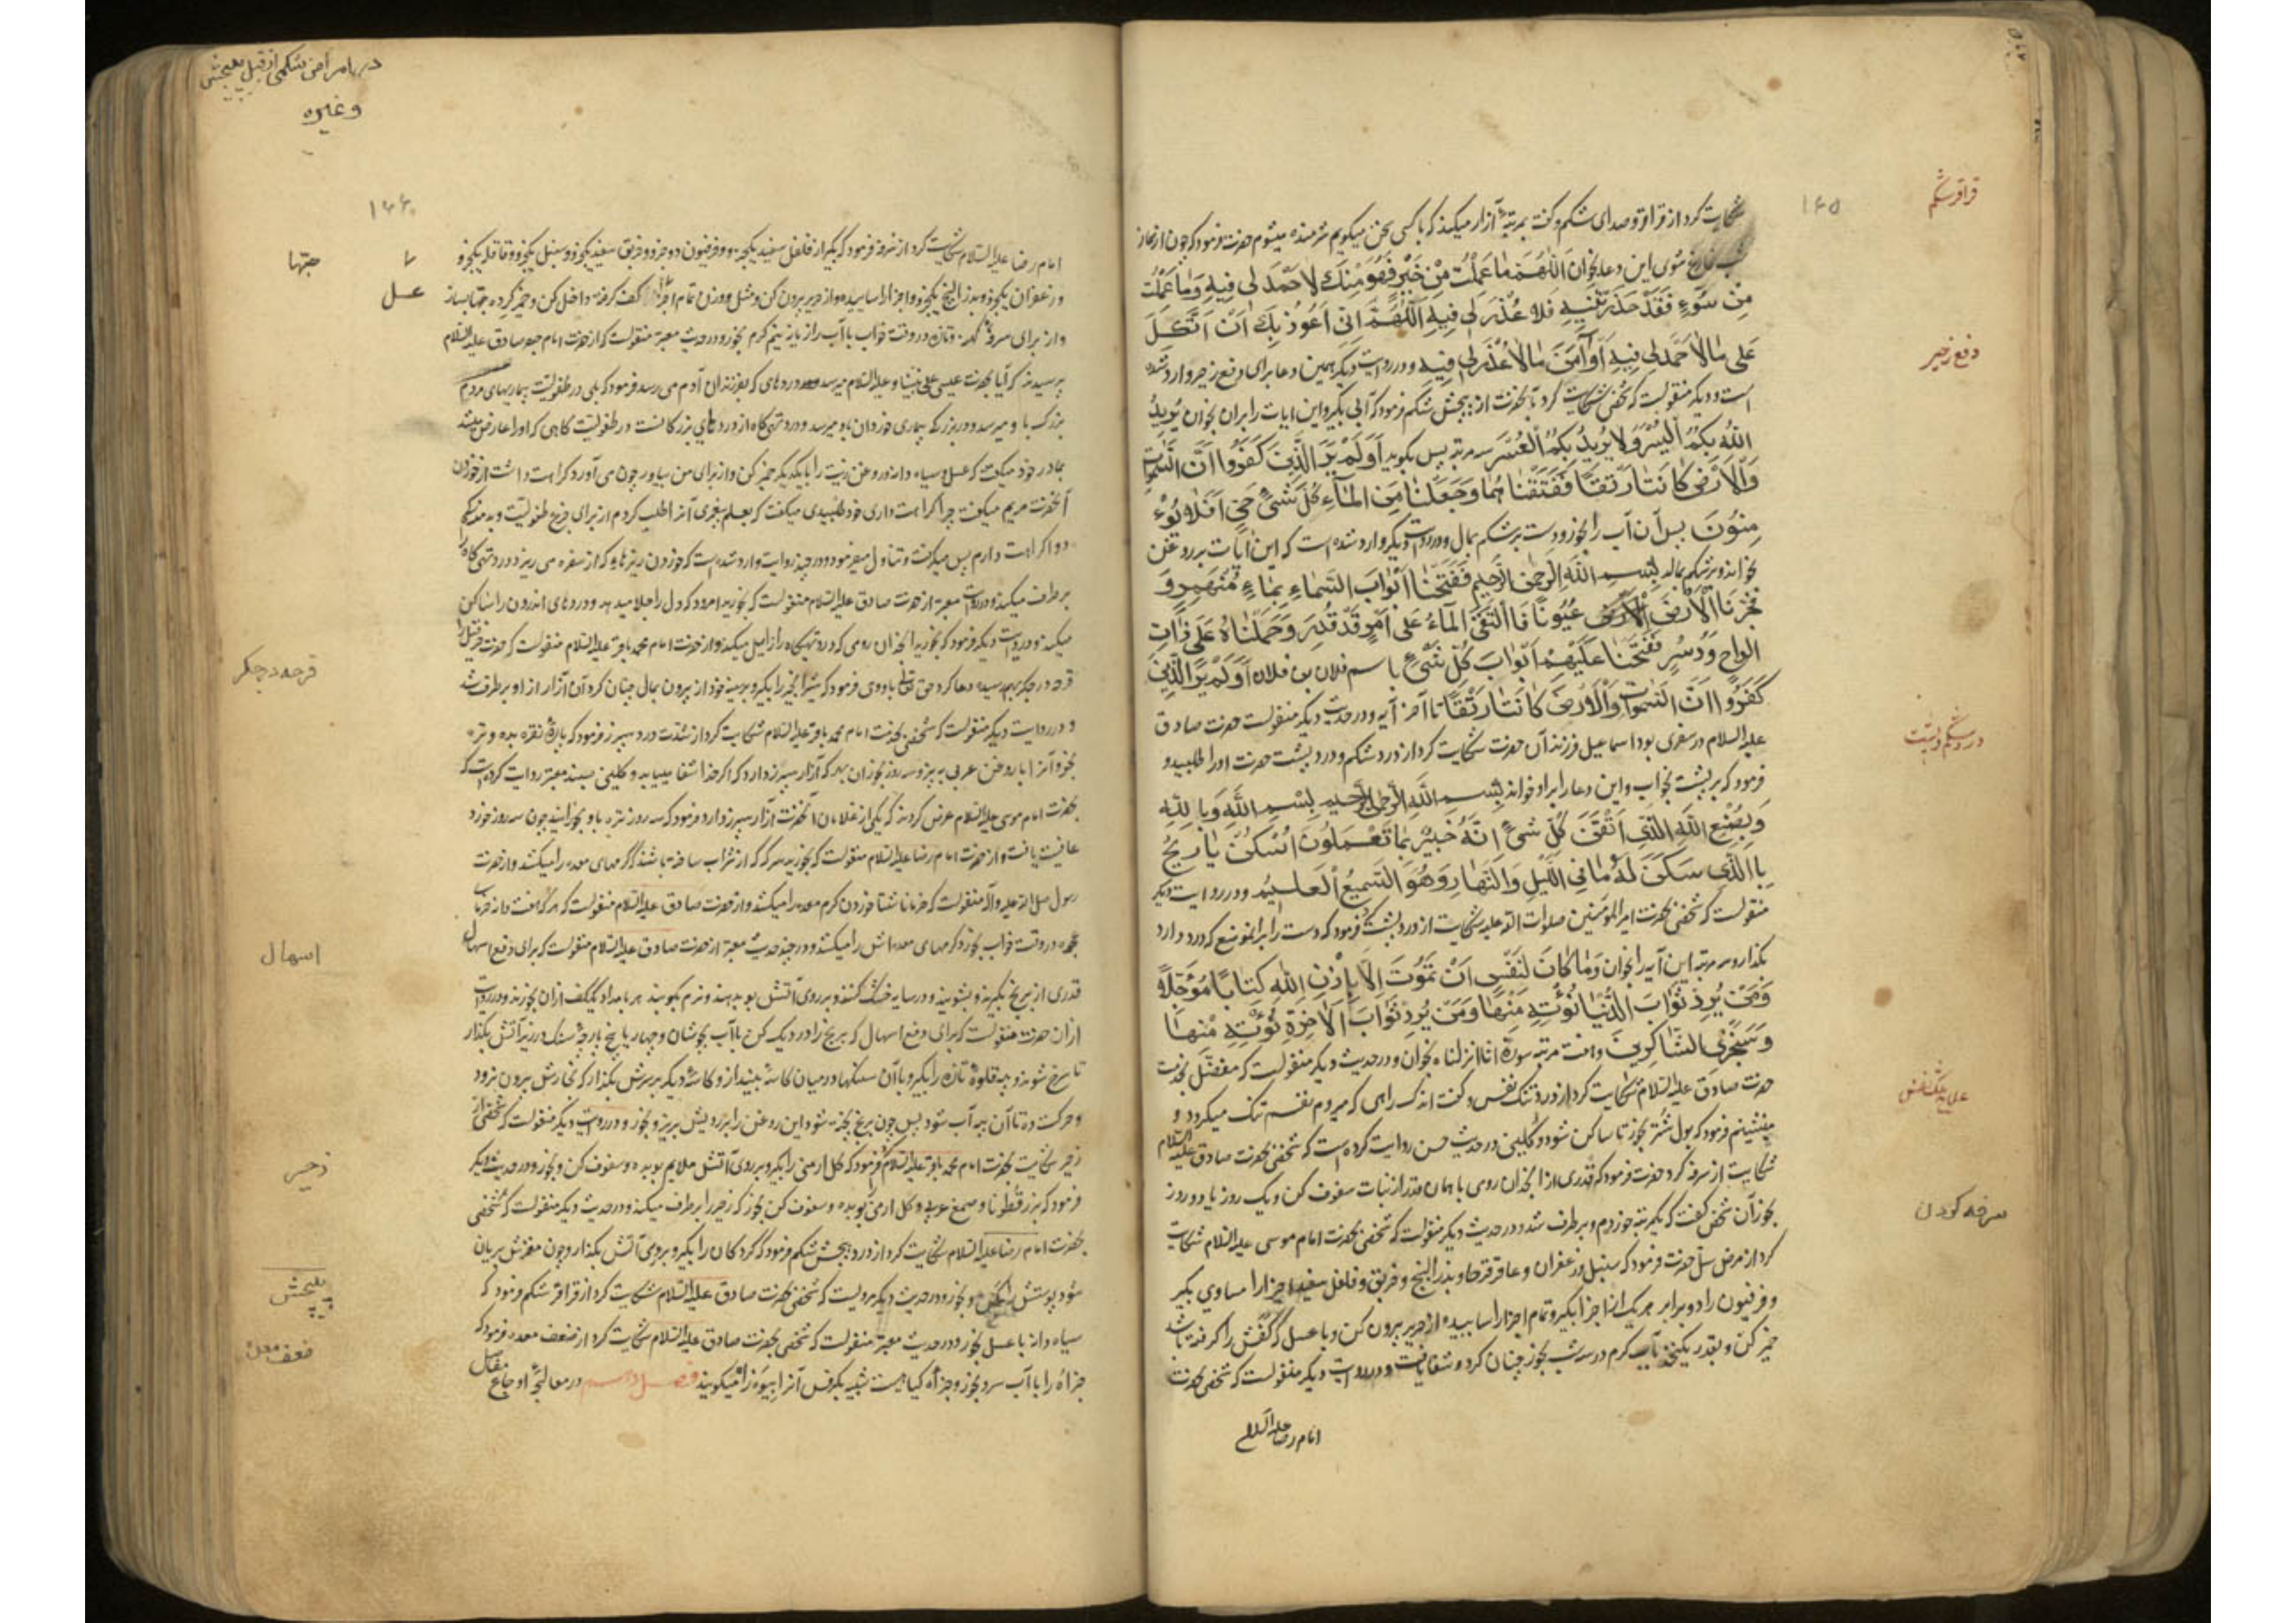 قراقر شکم
۱۶۵
شکایت کرد از قراقر و صدای شکم و گفت بمرتبهٔ آزار میکند که با کسی سخن میگویم شرمنده میشوم حضرت فرمود که چون از نماز
شب فارغ شوی این دعا بخوان اَللّٰهُمَّ مَا عَمِلْتُ مِنْ خَیْرٍ فَهُوَ مِنْكَ لَا حَمْدَ لی فیهِ وَمَا عَمِلْتُ
مِنْ سُوءٍ فَقَدْ حَذَّرْتَنِیهِ فَلا عُذْرَ لی فِیهِ اَللّٰهُمَّ اِنّی اَعُوذُ بِكَ اَنْ اَتَّکِلَ
دفع زحیر
عَلٰی مَا لا حَمْدَ لی فِیهِ اَوْ آمَنَ مَا لا عُذْرَ لی فِیهِ و در روایت دیگر همین دعا برای دفع زحیر وارد شده
است و دیگر منقولست که شخصی شکایت کرد بآنحضرت از پیچش شکم فرمود که آبی بگیر و این ایات را بران بخوان یُرِیدُ
اللّٰهُ بِکُمُ الْیُسْرَ وَلا یُرِیدُ بِکُمُ الْعُسْرَ سه مرتبه پس بگوید اَوَلَمْ یَرَ الَّذِینَ کَفَرُوا اَنَّ السَّمٰوٰاتِ
وَالْاَرْضَ کَانَتَا رَتْقًا فَفَتَقْنَاهُمَا وَجَعَلْنَا مِنَ الْمَآءِ کُلَّ شَیْءٍ حَیٍّ اَفَلا یُؤْ
مِنُونَ پس آن آب را بخور و دست بر شکم بمال و در روایت دیگر وارد شده است که این ایات بر روغن
بخواند و بر شکم بمالد بِسْمِ اللّٰهِ الرَّحْمٰنِ الرَّحِیمِ فَفَتَحْنَا اَبْوَابَ السَّمَاءِ بِمَاءٍ مُنْهَمِرٍ وَ
فَجَّرْنَا الْاَرْضَ عُیُونًا فَالْتَقَی الْمَآءُ عَلٰی اَمْرٍ قَدْ قُدِرَ وَحَمَلْنَاهُ عَلٰی ذَاتِ
اَلْوَاحٍ وَدُسُرٍ فَفَتَحْنَا عَلَیْهِمْ اَبْوَابَ کُلِّ شَیْءٍ باسم فلان بن فلان اَوَلَمْ یَرَ الَّذِینَ
کَفَرُوا اَنَّ السَّمٰوٰاتِ وَالْاَرْضَ کَانَتَا رَتْقًا تا آخر آیه و در حدیث دیگر منقولست حضرت صادق
درد شکم و پشت
علیه السلام در سفری بود اسماعیل فرزند آن حضرت شکایت کرد از درد شکم و درد پشت حضرت او را طلبید و
فرمود که بر پشت بخواب و این دعا را بر او خواند بِسْمِ اللّٰهِ الرَّحْمٰنِ الرَّحِیمِ بِسْمِ اللّٰهِ وَبِاللّٰهِ
وَبِصُنْعِ اللّٰهِ الَّذِی اَتْقَنَ کُلَّ شَیْءٍ اِنَّهُ خَبِیرٌ بِمَا تَعْمَلُونَ اُسْکُنْ یَا رِیحُ
بِالَّذِی سَکَنَ لَهُ مَا فِی اللَّیْلِ وَالنَّهَارِ وَهُوَ السَّمِیعُ الْعَلِیمُ و در روایت دیگر
منقولست که شخصی بحضرت امیر المؤمنین صلوات الله علیه شکایت از درد پشت کرد فرمود که دست را بر انموضع که درد دارد
بگذار و سه مرتبه این آیه را بخوان وَمَا کَانَ لِنَفْسٍ اَنْ تَمُوتَ اِلَّا بِاِذْنِ اللّٰهِ کِتَابًا مُؤَجَّلًا
وَمَنْ یُرِدْ ثَوَابَ الدُّنْیَا نُؤْتِهِ مِنْهَا وَمَنْ یُرِدْ ثَوَابَ الْاٰخِرَةِ نُؤْتِهِ مِنْهَا
وَسَنَجْزِی الشَّاکِرِینَ و هفت مرتبه سورهٔ انا انزلناه بخوان و در حدیث دیگر منقولست که مفضل بخدمت
علاج تنگ نفس
حضرت صادق علیه السلام شکایت کرد از درد تنگ نفس و گفت اندک راهی که میروم نفسم تنک میگردد و
مینشینم فرمود که بول شتر بخور تا ساکن شود و کلینی در حدیث حسن روایت کرده است که شخصی بحضرت صادق علیه السلام
سرفه کردن
شکایت از سرفه کرد حضرت فرمود که قدری از انجدان رومی با همان قدر از نبات سفوف کن و یک روز یا دو روز
بخور آن شخص گفت که یکمرتبه خوردم و برطرف شد و در حدیث دیگر منقولست که شخصی بحضرت امام موسی علیه السلام شکایت
کرد از مرض سل حضرت فرمود که سنبل و زعفران و عاقرقرحا و بذر البنج و خربق و فلفل سفید اجزا را مساوی بگیر
و فرفیون را دو برابر هر یک از اجزا بگیر و تمام اجزا را بسایید و از حریر بیرون کن و با عسل که کفش را گرفته باشند
خمیر کن و بقدر یکنخود بآب گرم در سه شب بخور چنان کرد و شفا یافت و در روایت دیگر منقولست که شخصی بحضرت
امام رضا علیه السلام
در امراض شکمی از قبیل پیچش
وغیره
۱۶۶
امام رضا علیه السلام شکایت کرد از سرفه فرمود که بگیر از فلفل سفید یکجزو و فرفیون دو جزو و خربق سفید یکجزو و سنبل یکجزو و قاقله یکجزو
حبّها
با عسل
و زعفران یکجزو و بذر البنج یکجزو و اجزا را بسایید و از حریر بیرون کن و مثل وزن تمام اجزا کف گرفته داخل کن و خمیر کرده حبها بساز
و از برای سرفه کهنه و تازه در وقت خواب با آب رازیانه نیم گرم بخور و در حدیث معتبر منقولست که از حضرت امام جعفر صادق علیه السلام
پرسیدند که آیا بحضرت عیسی علی نبینا و علیه السلام میرسد دردهای که بفرزندان آدم می رسد فرمود که بلی در طفولیت بیماریهای مردم
بزرگ باو میرسد و در بزرگی بیماری خوردان باو میرسد و درد تهی گاه از دردهای بزرگانست در طفولیت گاهی که او را عارض میشد
بمادر خود میگفت که عسل و سیاه دانه و روغن زیت را با یکدیگر خمیر کن و از برای من بیاور چون می آورد کراهت داشت از خوردن
آنحضرت مریم میگفت چرا کراهت داری خود طلبیدی میگفت که بعلم پیغمبری آنرا طلب کردم از برای جزع طفولیت و بد مزگی
دوا کراهت دارم پس میگرفت و تناول میفرمود و در چند روایت وارد شده است که خوردن ریزهای که از سفره می ریزد درد تهی گاه را
برطرف میکند و در روایت معتبر از حضرت صادق علیه السلام منقولست که بخورید امرود که دل را جلا میدهد و دردهای اندرون را ساکن
میکند و در روایت دیگر فرمود که بخورید انجدان رومی که درد تهیگاه را زایل میکند و از حضرت امام محمد باقر علیه السلام منقولست که حضرت حزقیل را
قرحه در جگر
قرحه در جگر بهم رسید دعا کرد حق تعالی باو وحی فرمود که شیر انجیر را بگیر و بر سینه خود از بیرون بمال چنان کرد آن آزار از او برطرف شد
و در روایت دیگر منقولست که شخصی بخدمت امام محمد باقر علیه السلام شکایت کرد از شدت درد سپرز فرمود که پارهٔ نقره بده و تره
بخر و آنرا با روغن عربی بپز و سه روز بخوران بهر که آزار سپرز دارد که اگر خدا شفا مییابد و کلینی بسند معتبر روایت کرده است که
بحضرت امام موسی علیه السلام عرض کردند که یکی از غلامان آنحضرت آزار سپرز دارد فرمود که سه روز تره باو بخورانید چون سه روز خورد
عافیت یافت و از حضرت امام رضا علیه السلام منقولست که بخورید سرکه که از شراب ساخته باشند که کرمهای معده را میکشد و از حضرت
رسول صلی الله علیه و آله منقولست که خرما ناشتا خوردن کرم معده را میکشد و از حضرت صادق علیه السلام منقولست که هر که هفت دانه خرمای
اسهال
عجوه در وقت خواب بخورد کرمهای معده اش را میکشد و در چند حدیث معتبر از حضرت صادق علیه السلام منقولست که برای دفع اسهال
قدری از برنج بگیرند و بشویند و در سایه خشک کنند و بر روی آتش بو بدهند و نرم بکوبند هر بامداد یک کف ازان بخورند و در روایت
ازان حضرت منقولست که برای دفع اسهال که برنج را در دیگ کن با آب بجوشان و چهار یا پنج پارچه سنگ در زیر آتش بگذار
تا سرخ شوند و پیه قلوهٔ تازه را بگیر و با آن سنگها در میان کاسهٔ بینداز و کاسهٔ دیگر بر سرش بگذار که بخارش بیرون نرود
و حرکت ده تا آن پیه آب شود پس چون برنج پخته شود این روغن را بر رویش بریز و بخور و در روایت دیگر منقولست که شخصی از
زحیر
زحیر شکایت بحضرت امام محمد باقر علیه السلام فرمود که گل ارمنی را بگیر و بر روی آتش ملایم بو بده و سفوف کن و بخور و در حدیث دیگر
فرمود که بزرقطونا و صمغ عربی و گل ارمنی بو بده و سفوف کن بخور که زحیر را برطرف میکند و در حدیث دیگر منقولست که شخصی
بحضرت امام رضا علیه السلام شکایت کرد از درد پیچش شکم فرمود که گردکان را بگیر و بر روی آتش بگذار و چون مغزش بریان
پیچش
شود پوستش بکن و بخور و در حدیث دیگر مرویست که شخصی بحضرت صادق علیه السلام شکایت کرد از قراقر شکم فرمود که
ضعف معده
سیاه دانه با عسل بخور و در حدیث معتبر منقولست که شخصی بحضرت صادق علیه السلام شکایت کرد از ضعف معده فرمود که
حزاه را با آب سرد بخور و حزاه گیاهیست شبیه بکرفس آنرا بیوه زا میگویند فصل در معالجهٔ اوجاع مفاصل